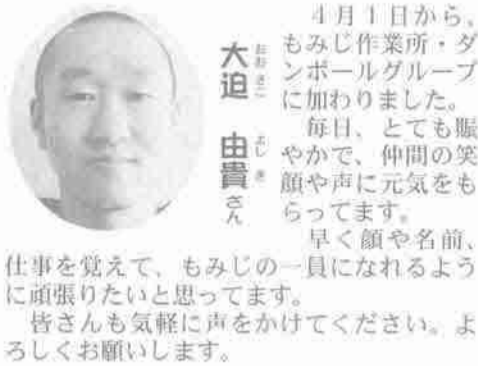 大迫　由貴さん
おお さこ　よし き
４月１日から、
もみじ作業所・ダ
ンボールグループ
に加わりました。
毎日、とても賑
やかで、仲間の笑
顔や声に元気をも
らってます。
早く顔や名前、
仕事を覚えて、もみじの一員になれるよう
に頑張りたいと思ってます。
皆さんも気軽に声をかけてください。よ
ろしくお願いします。